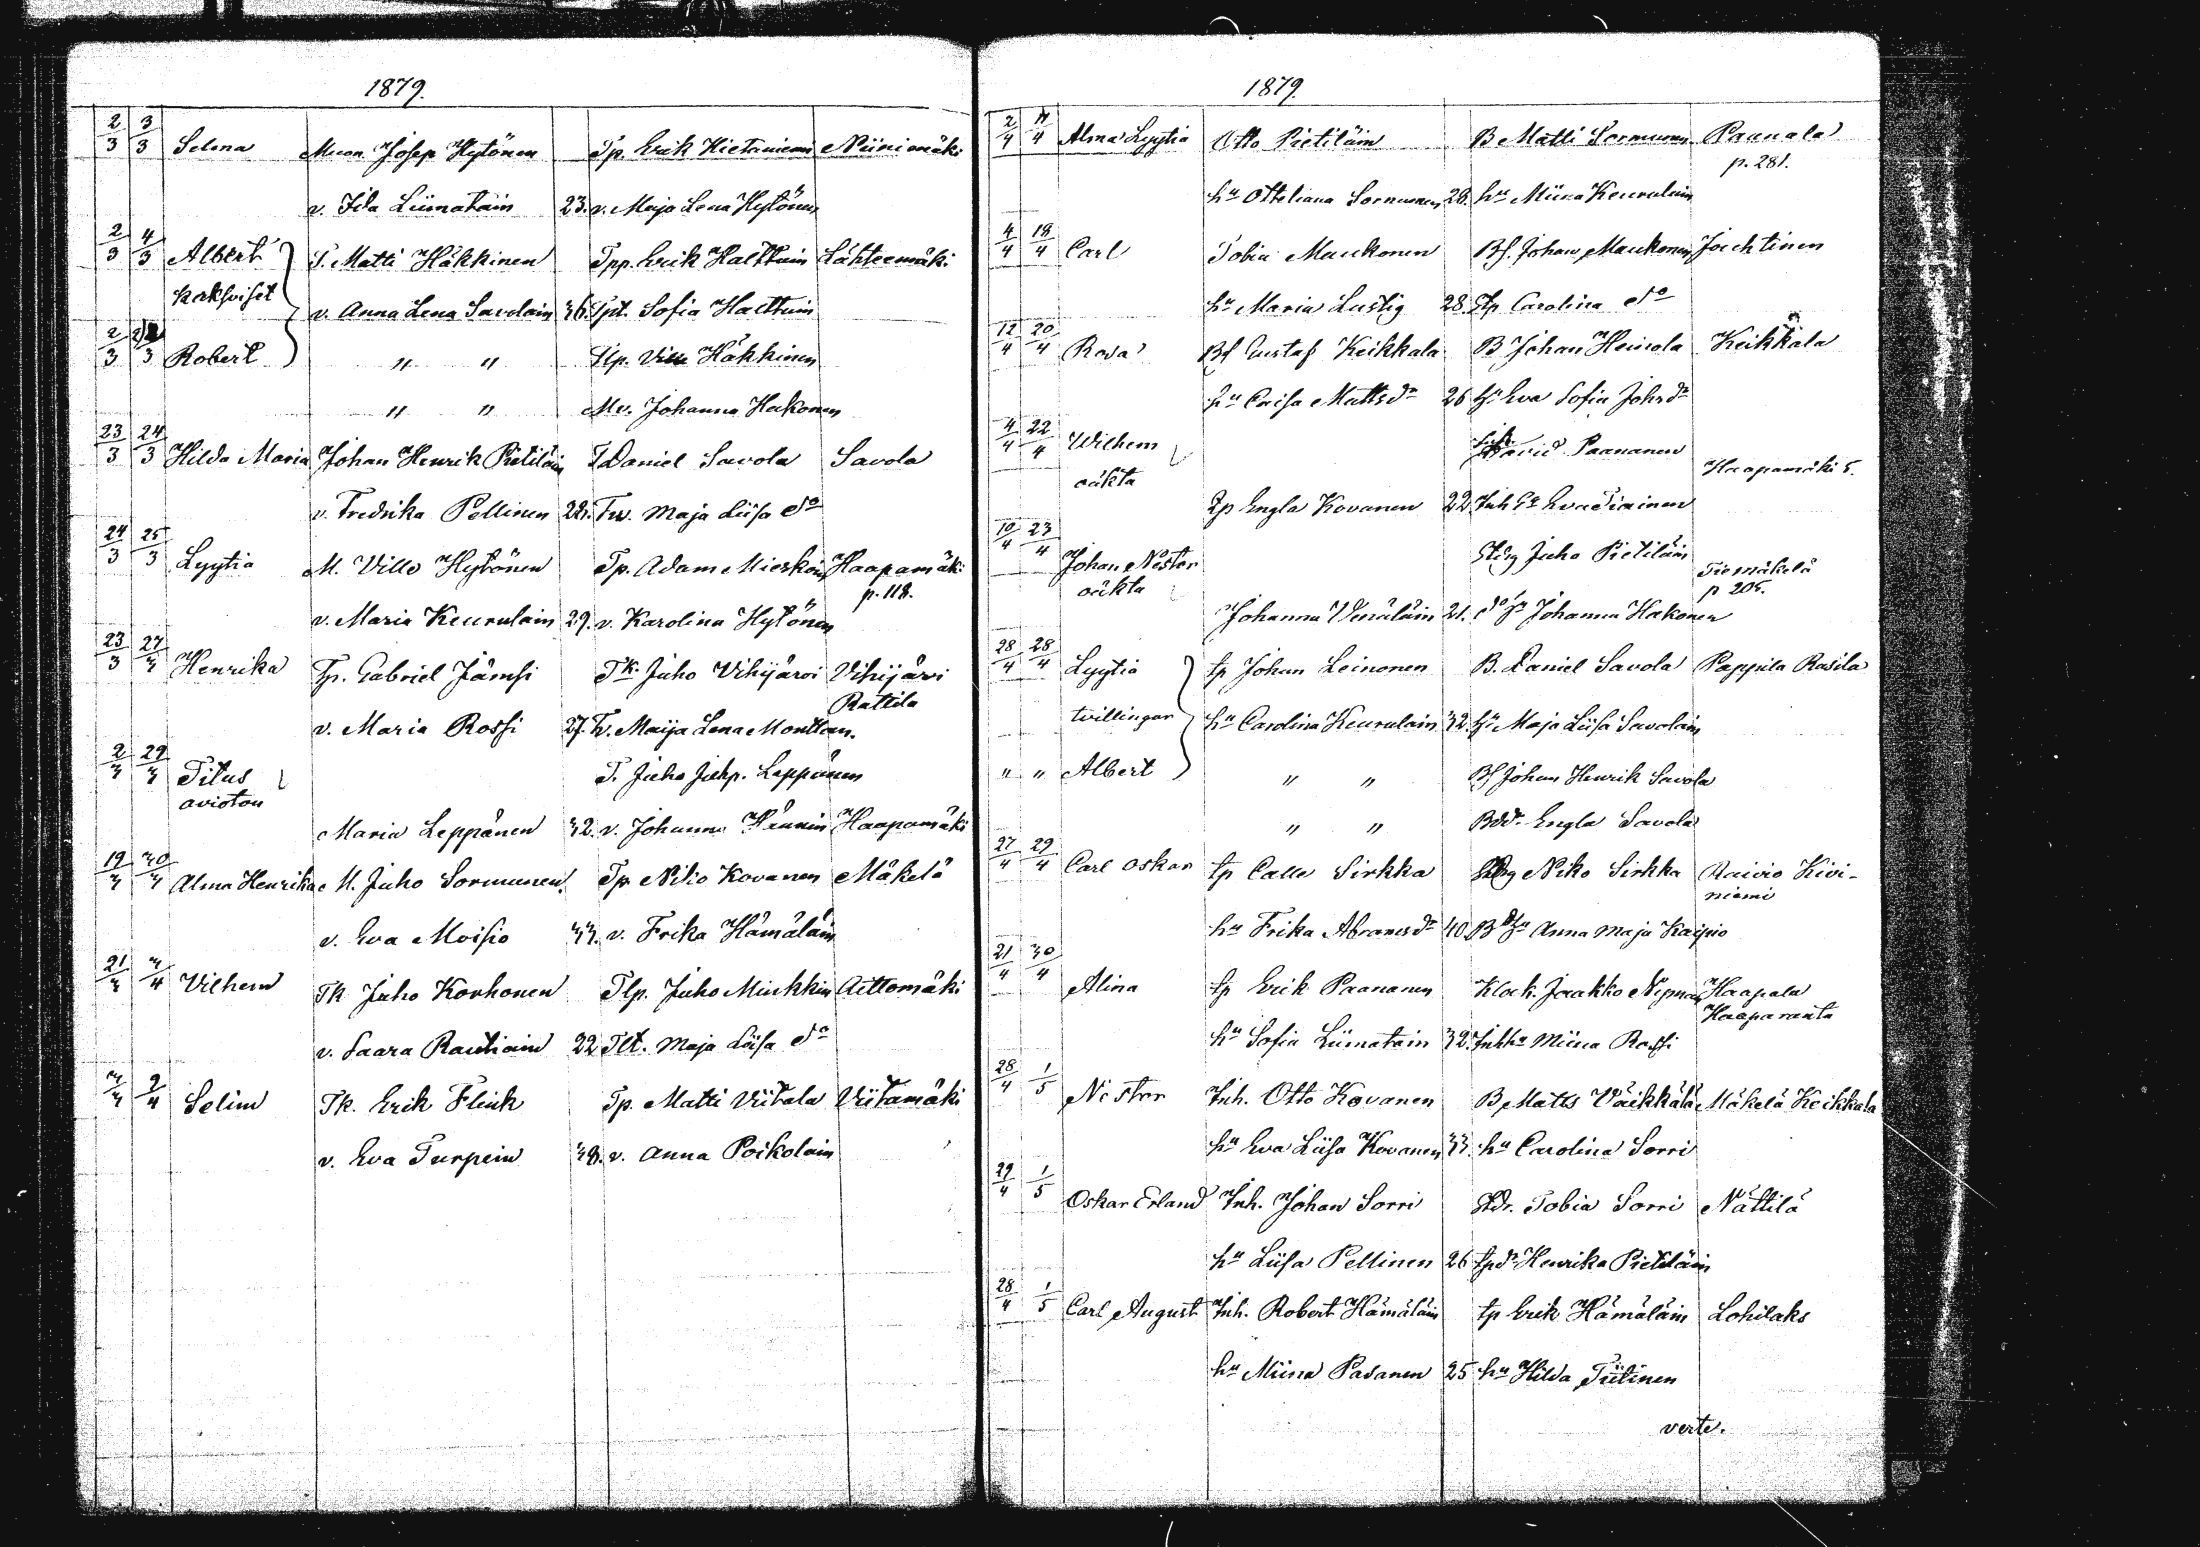 1879.
2/3 3/3 Selma Muon. Josep Hytönen Tp. Erik Hietaniemi Niinimäki
v. Ida Liimatain 23. v. Maja Lena Hytönen
2/3 4/3 Albert T. Matti Häkkinen Tpp. Erik Halttuin Lähteemäki
kaksoiset v. Anna Lena Savolain 36. Tpt. Sofia Halttuin
2/3 Robert " " Tlp. Ville Häkkinen
" " Mv. Johanna Hakonen
23/3 24/3 Hilda Maria Johan Henrik Pietiläin T Daniel Savola Savola
v. Fredrika Pellinen 22. Tv. Maja Liisa do
24/3 25/3 Lyytia M. Ville Hytönen Tp. Adam Mieskoin Haapamäki
p. 118.
v. Maria Keurulain 29. v. Karolina Hytönen
23/3 27/3 Henrika Tp. Gabriel Jämsi Tk. Juho Vihijärvi Vihijärvi
Rattila
v. Maria Rossi 27. Tv. Maija Lena Monttin.
2/3 29/3 Titus T. Juho Juhp. Leppänen
avioton
Maria Leppänen 32. v. Johanna Hännin Haapamäki
19/3 30/3 Alma Henrika M. Juho Sormunen Tp. Niko Kovanen Mäkelä
v. Eva Moisio 33. v. Frika Hämäläin
21/3 3/4 Vilhem Tk Juho Korhonen Tlp. Juho Minkkin Aittomäki
v. Saara Rautiain 22 Tlt. Maja Liisa do
3/3 9/4 Selim Tk. Erik Flink Tp. Matti Viitala Viitamäki
v. Eva Turpein 38. v. Anna Poikolain
1879.
2/4 14/4 Alma Lyytia Otto Pietiläin B Matti Sormunen Paanala
p. 281.
hu Ottoliana Sormunen 28. hu Miina Keurulain
4/4 18/4 Carl Tobia Maukonen Bs. Johan Maukonen Jochtinen
hu Maria Lustig 28. Tp Carolina do
12/4 20/4 Rosa Bs Gustaf Keikkala B Johan Heinola Keikkala
hu Caisa Mattsdr 26 hu Eva Sofia Johsdr
4/4 22/4 Wilhem David Paananen Haapamäki 5.
oäkta
Tp Engla Kovanen 22 Inh hu Eva Tiainen
10/4 23/4 Johan Nestor Stdg Juho Pietiläin Tiemäkelä
oäkta p 205.
Johanna Venäläin 21. do hu Johanna Hakonen
28/4 28/4 Lyytia tp Johan Leinonen B. Daniel Savola Pappila Rasila
tvillingar hu Carolina Keurulain 32. hu Maja Liisa Savolain
" " Albert " " Bs Johan Henrik Savola
" " Bdr. Engla Savola
27/4 29/4 Carl Oskar tp Calle Sirkka Stdg Niko Sirkka Raivio Kivi-
niemi
hu Frika Abramsdr 40. B hu Anna Maja Kaipio
21/4 30/4 Alina tp Erik Paananen Klock. Jaakko Nyman Haapala
Haaparanta
hu Sofia Liimatain 32. Inhhu Miina Rossi
28/4 1/5 Nestor Inh. Otto Kovanen B Matts Väikkälä Mäkelä Keikkala
hu Eva Liisa Kovanen 33. hu Carolina Sorri
29/4 1/5 Oskar Erland Inh. Johan Sorri Stdr. Tobia Sorri Nättilä
hu Liisa Pellinen 26 tpdr Henrika Pietiläin
28/4 1/5 Carl August Inh. Robert Hämäläin tp Erik Hämäläin Lohilaks
hu Miina Pasanen 25 hu Hilda Tiitinen
verte.